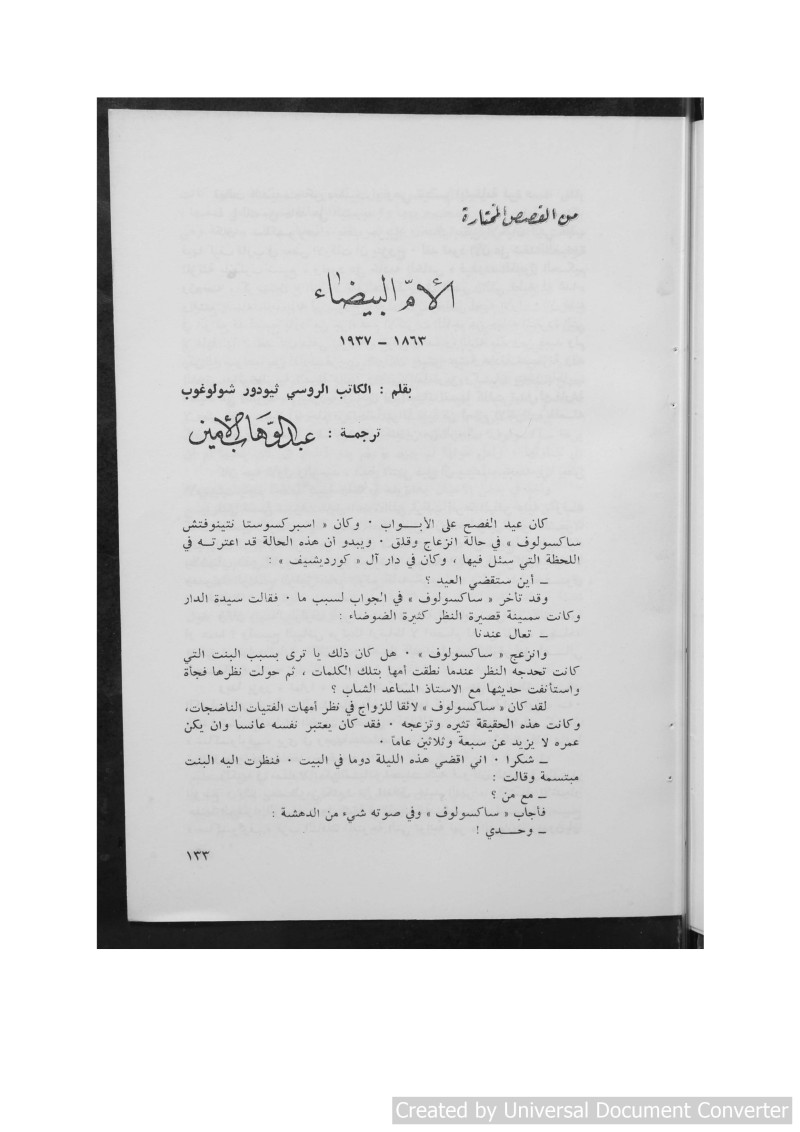 من القصص المختارة
الأمّ البيضاء
١٨٦٣ – ١٩٣٧
بقلم : الكاتب الروسي ثيودور شولوغوب
ترجمـة : عبد الوهاب الأمين
كان عيد الفصح على الأبـــواب ٠ وكان « اسبركسوستا نتينوفتش
ساكسولوف » في حالة انزعاج وقلق ٠ ويبدو ان هذه الحالة قد اعترتـه في
اللحظة التي سئل فيها ، وكان في دار آل « كورديشيف » :
ـ أين ستقضي العيد ؟
وقد تأخر « ساكسولوف » في الجواب لسبب ما ٠ فقالت سيدة الدار
وكانت سمينة قصيرة النظر كثيرة الضوضاء :
ـ تعال عندنا
وانزعج « ساكسولوف » ٠ هل كان ذلك يا ترى بسبب البنت التي
كانت تحدجه النظر عندما نطقت أمها بتلك الكلمات ، ثم حولت نظرها فجأة
واستأنفت حديثها مع الاستاذ المساعد الشاب ؟
لقد كان « ساكسولوف » لائقا للزواج في نظر أمهات الفتيات الناضجات،
وكانت هذه الحقيقة تثيره وتزعجه ٠ فقد كان يعتبر نفسه عانسا وان يكن
عمره لا يزيد عن سبعة وثلاثين عاماً ٠
ـ شكرا ٠ اني اقضي هذه الليلة دوما في البيت ٠ فنظرت اليه البنت
مبتسمة وقالت :
ـ مع من ؟
فأجاب « ساكسولوف » وفي صوته شيء من الدهشة :
ـ وحـــدي !
١٣٣
Created by Universal Document Converter